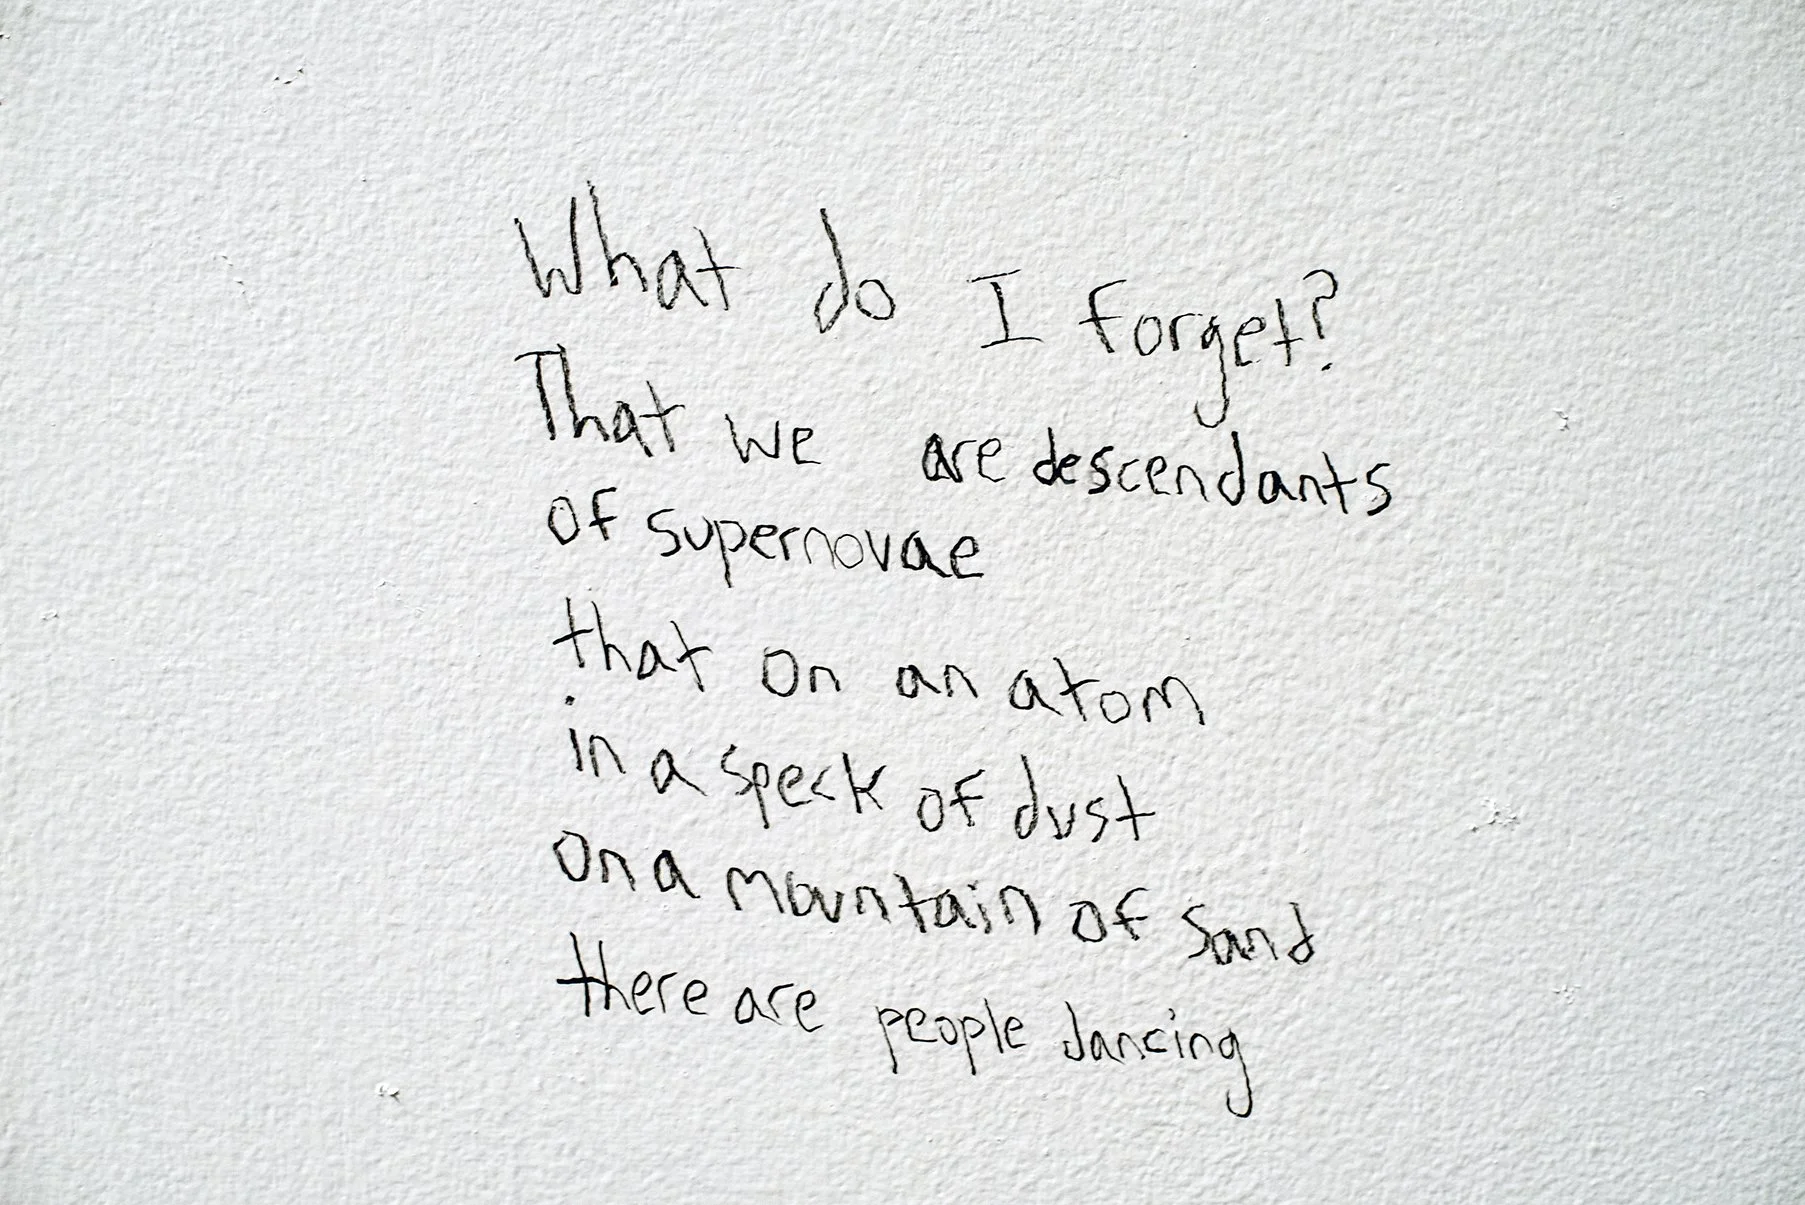 What do I forget?
That we are descendants
of supernovae
that on an atom
in a speck of dust
on a mountain of sand
there are people dancing